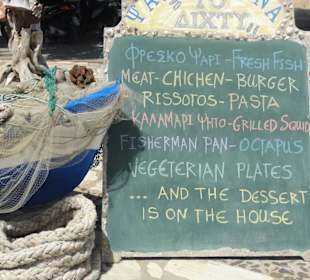 "ΤΟ
ΔΙΧΤΥ"
ΦΡΕΣΚΟ ΨΑΡΙ - FRESH FISH
MEAT-CHICHEN-BURGER
RISSOTOS-PASTA
ΚΑΛΑΜΑΡΙ ΨΗΤΟ-GRILLED SQUID
FISHERMAN PAN-OCTAPUS
VEGETERIAN PLATES
... AND THE DESSERT
IS ON THE HOUSE